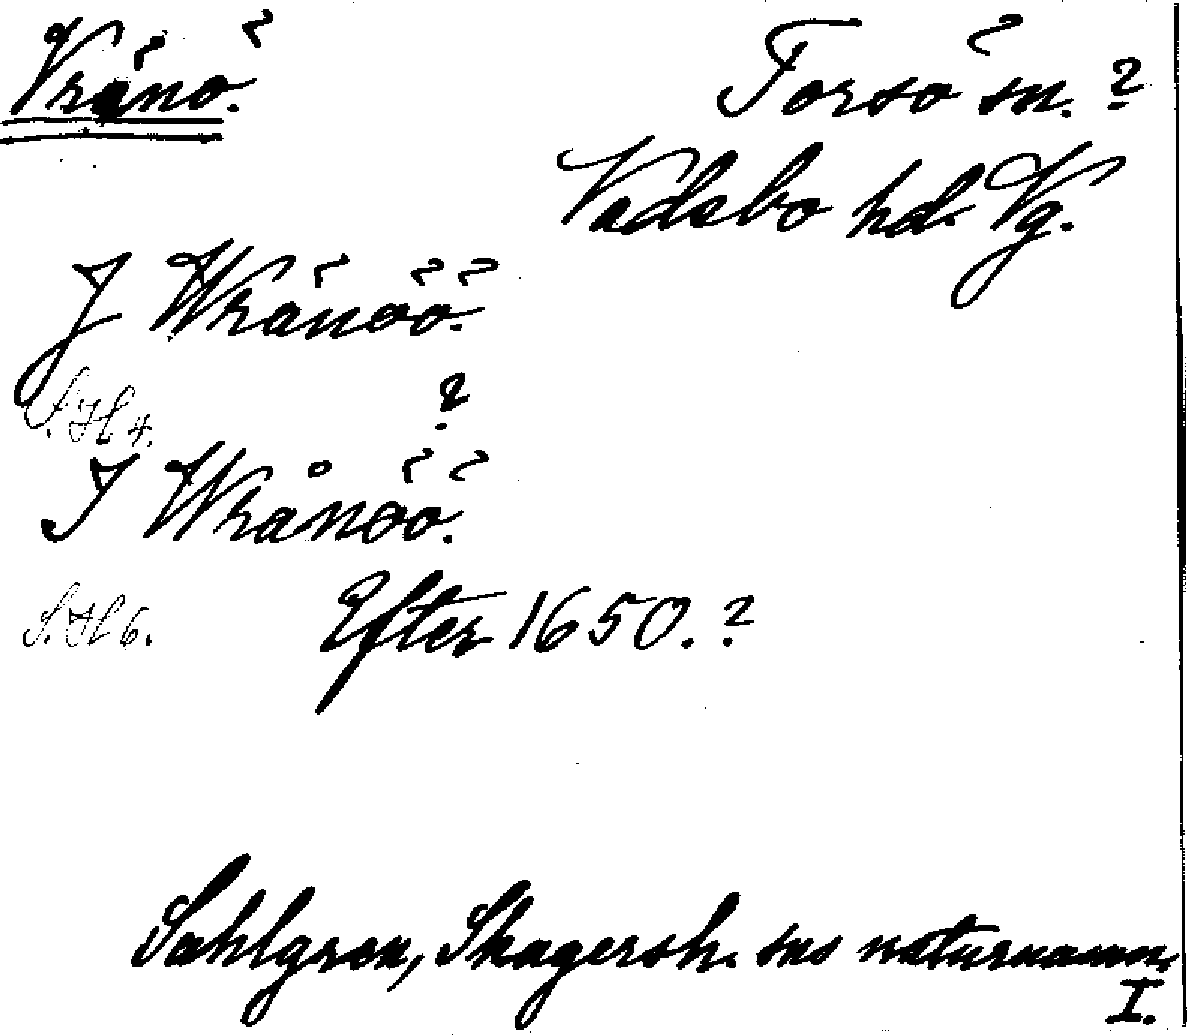 Vränö.
Torsö sn. ?
Vadsbo hd. Vg.
J Wränöö.
S.H 4. ?
J Wrånöö.
S.H 6. Efter 1650. ?
Sahlgren, Skagersh. sns naturnamn,
I.